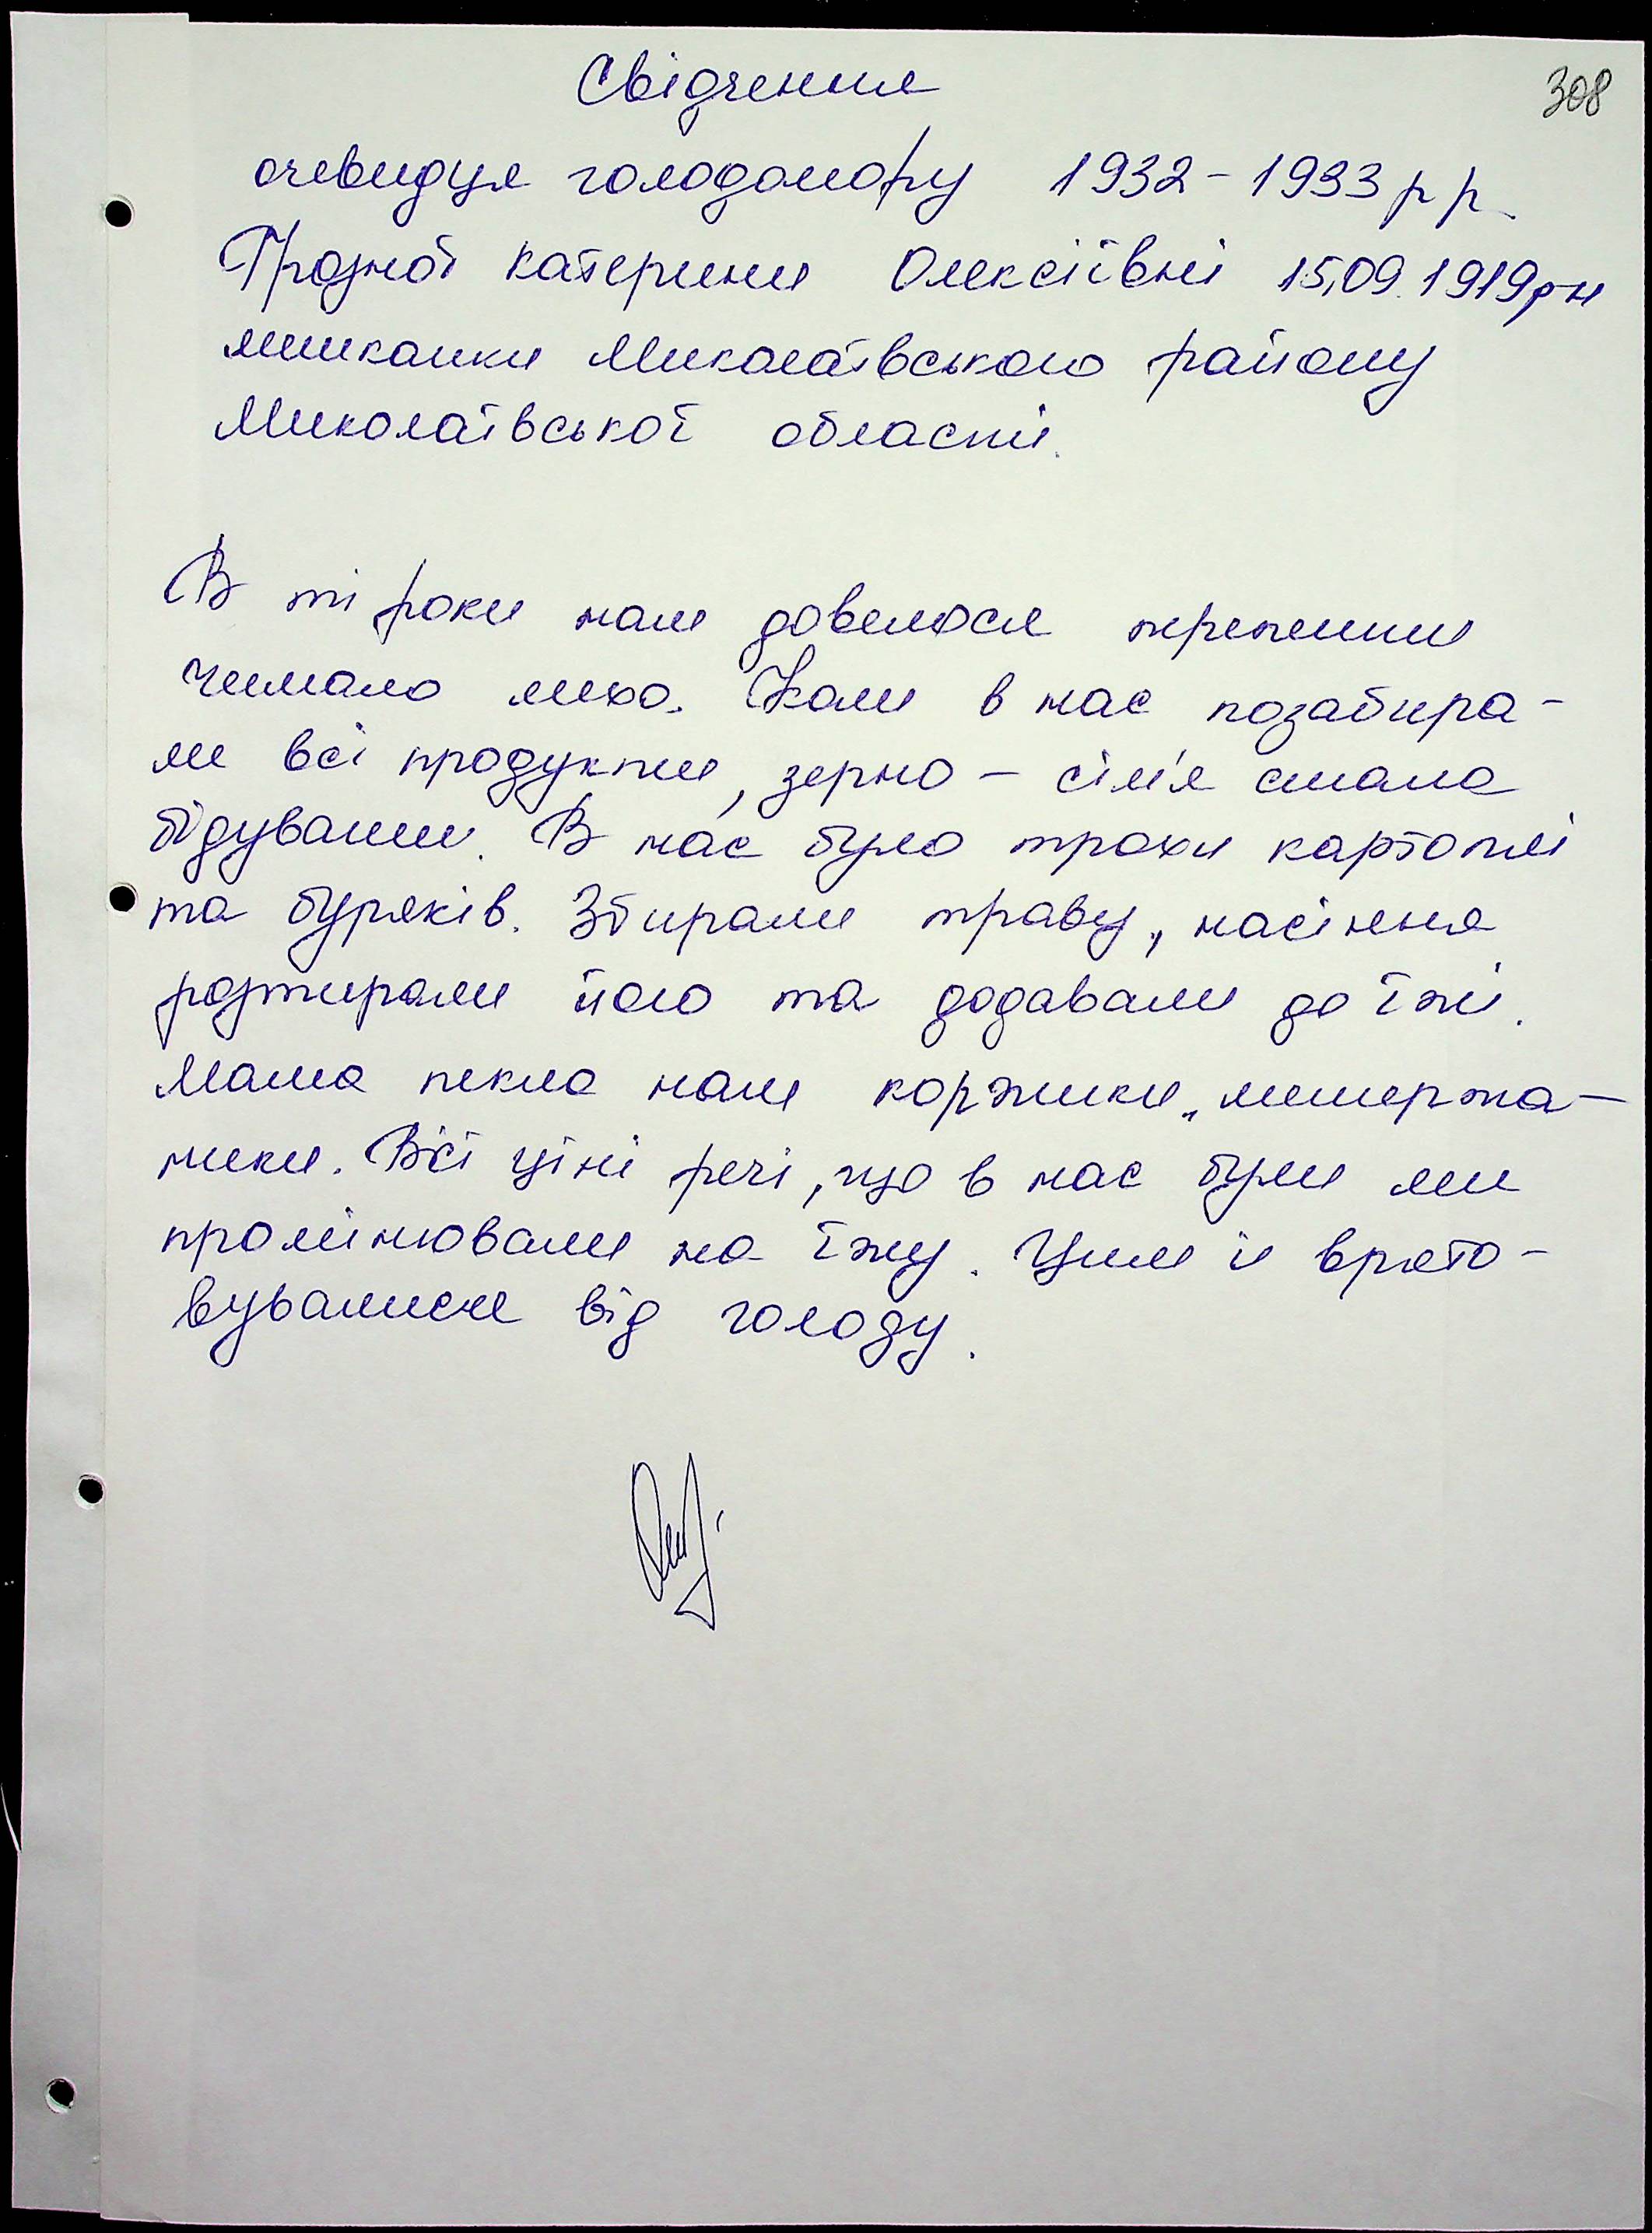 308
Свідчення
очевидця голодомору 1932-1933 рр.
Грозної Катерини Олексіївні 15,09.1919рн
мешканки Миколаївського району
Миколаївської області.
В ті роки нам довелося пережити
чимало лиха. Коли в нас позабира-
ли всі продукти, зерно - сім'я стала
бідувати. В нас було трохи картоплі
та буряків. Збирали траву, насіння
розтирали його та додавали до їжі.
Мама пекла нам коржики, матержа-
ники. Всі ціні речі, що в нас були ми
промінювали на їжу. Цим й врято-
вувалися від голоду.